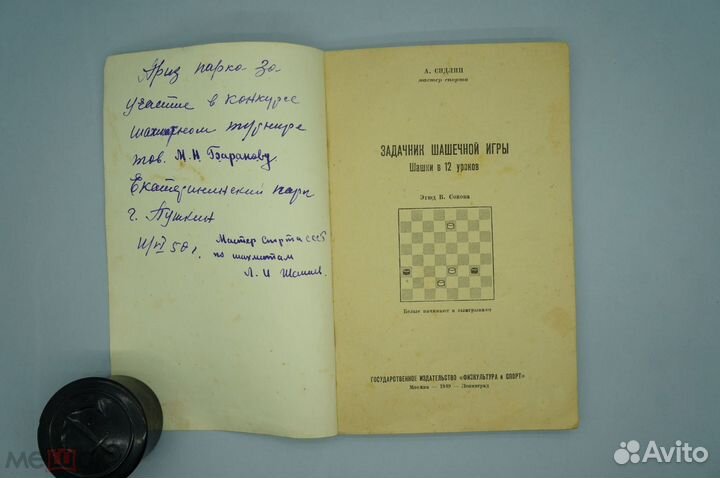 Приз парка за
участие в конкурсе
шахматном турнире
тов. М. И Баранову
Екатерининский парк
г. Пушкин
11/VI 50 г.
Мастер спорта СССР
по шахматам
Л. И
А. СИДЛИН
мастер спорта
ЗАДАЧНИК ШАШЕЧНОЙ ИГРЫ
Шашки в 12 уроков
Этюд В. Сокова
Белые начинают и выигрывают
ГОСУДАРСТВЕННОЕ ИЗДАТЕЛЬСТВО «ФИЗКУЛЬТУРА и СПОРТ»
Москва — 1949 — Ленинград
Avito